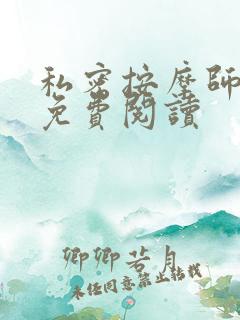 私密按摩師
免費閱讀
卿卿若月
未经同意禁止转载